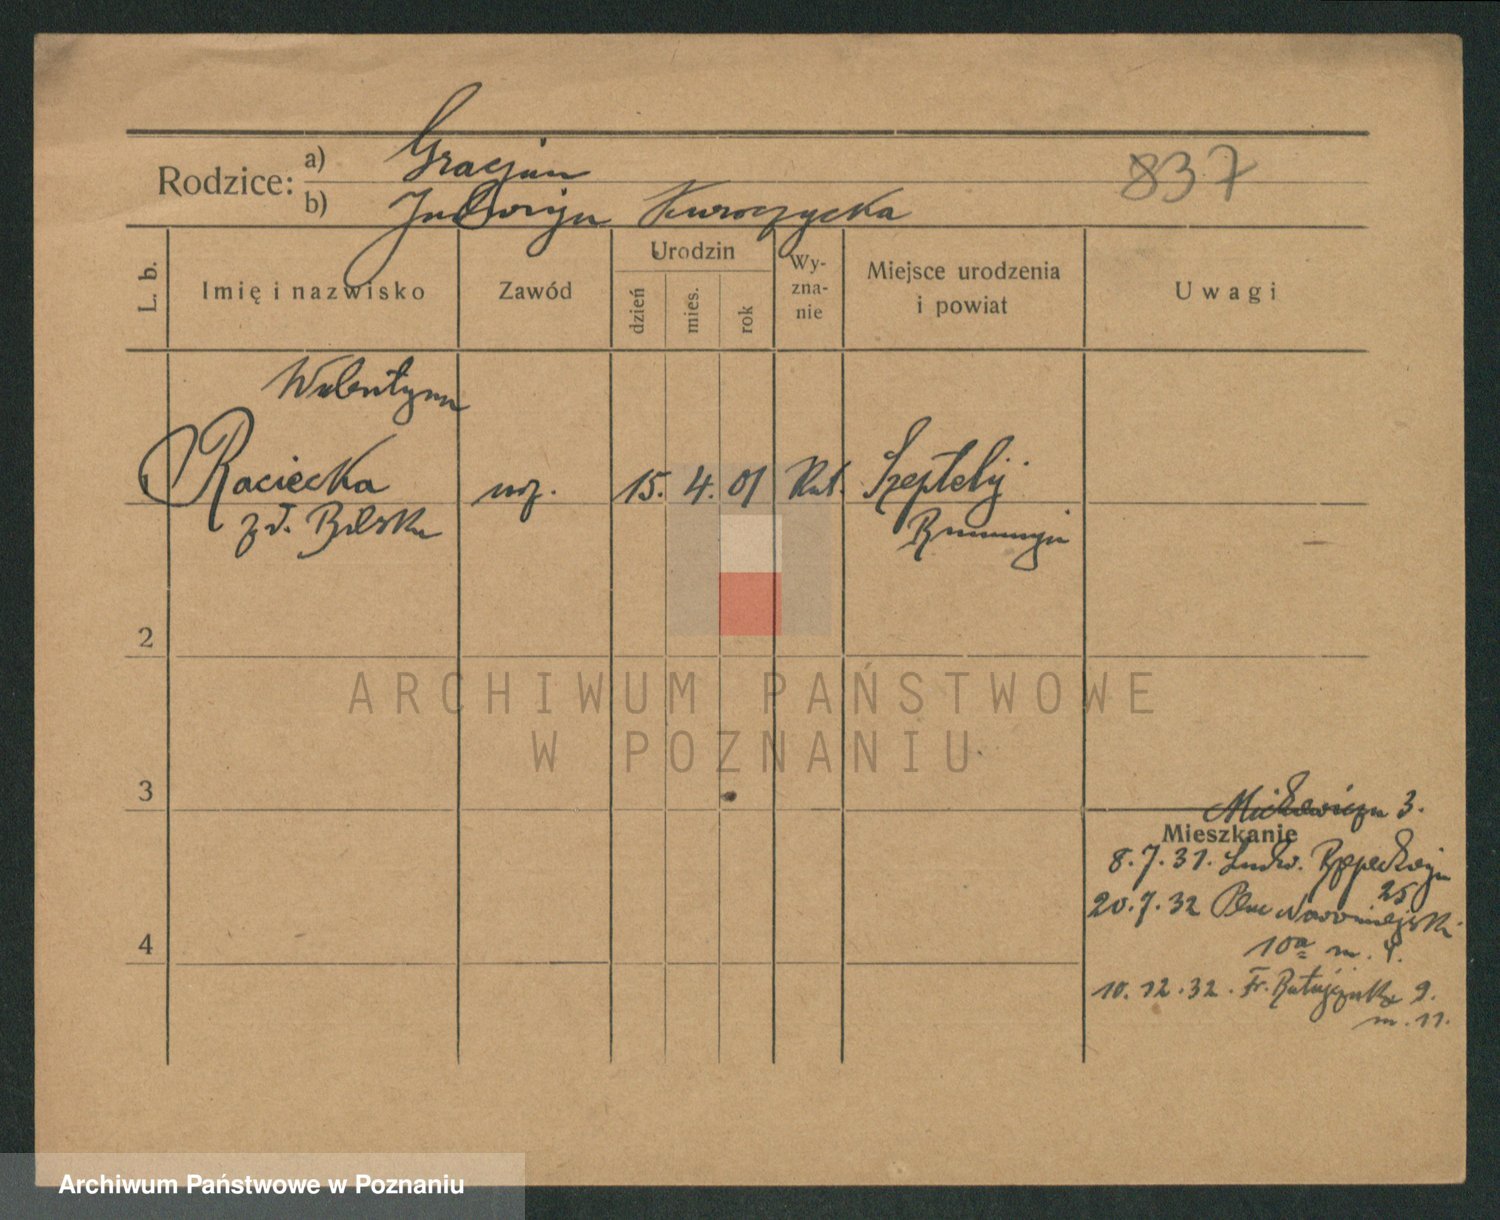 Rodzice: a) Gracjan
b) Jadwiga Kuroczycka
837
L. b.
Imię i nazwisko
Zawód
Urodzin
dzień
mies.
rok
Wy-
zna-
nie
Miejsce urodzenia
i powiat
Uwagi
Walentyna
Raciecka
z d. Bilska
15. 4. 01
Kat.
Szeptelij
Rumunija
2
ARCHIWUM PAŃSTWOWE
W POZNANIU
3
4
Mickiewicza 3.
Mieszkanie
8.7.31. Ludw. Rzepeckiego
25
20.7.32 Plac Nowomiejski
10a m. 4.
10.12.32. Fr. Ratajczaka 9.
m. 11.
Archiwum Państwowe w Poznaniu